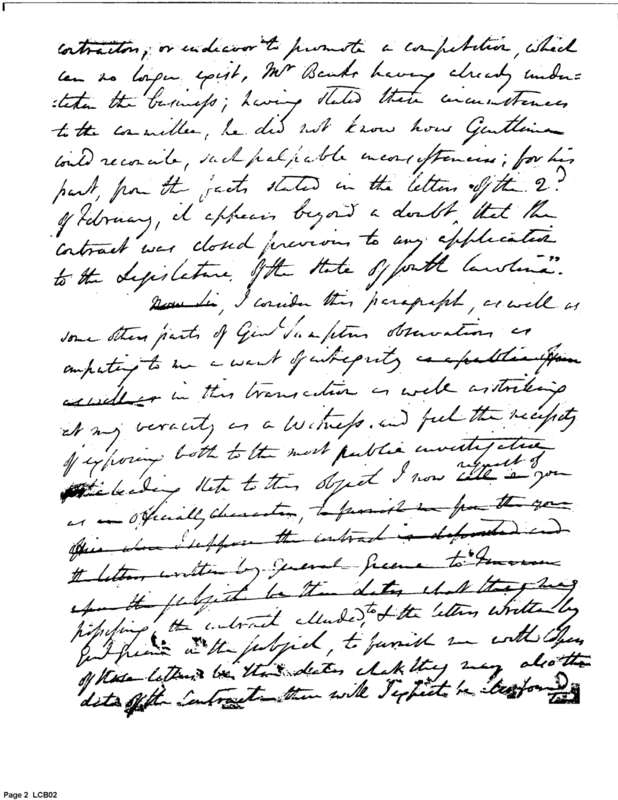 contractors, or endeavor to promote a competition, which
can no longer exist, Mr Banks having already under=
:taken the business; having stated these circumstances
to the committee, he did not know how Gentlemen
could reconcile, such palpable inconsistencies; for his
part, from the facts stated in the letters of the 2d
of February, it appears beyond a doubt, that the
contract was closed previous to any application
to the Legislature, of the State of South Carolina".
Now Sir, I consider this paragraph, as well as
some other parts of Genl Sumpters observations as
imputing to me a want of integrity as a public
as well as in this transaction as well as striking
at my veracity as a Witness. and feel the necessity
of exposing both to the most public investigation
leading step to this object I now call on request of you
as an officially character, to furnish me from the your
office where I suppose the contract is deposited and
the letters written by General Greene to
upon the subject be their dates what they may
possessing the contract alluded to & the letters written by
Genl Greene on the subject, to furnish me with Copies
of those letters be their dates what they may also the
date of the Contract then will I expect be
Page 2 LCB02